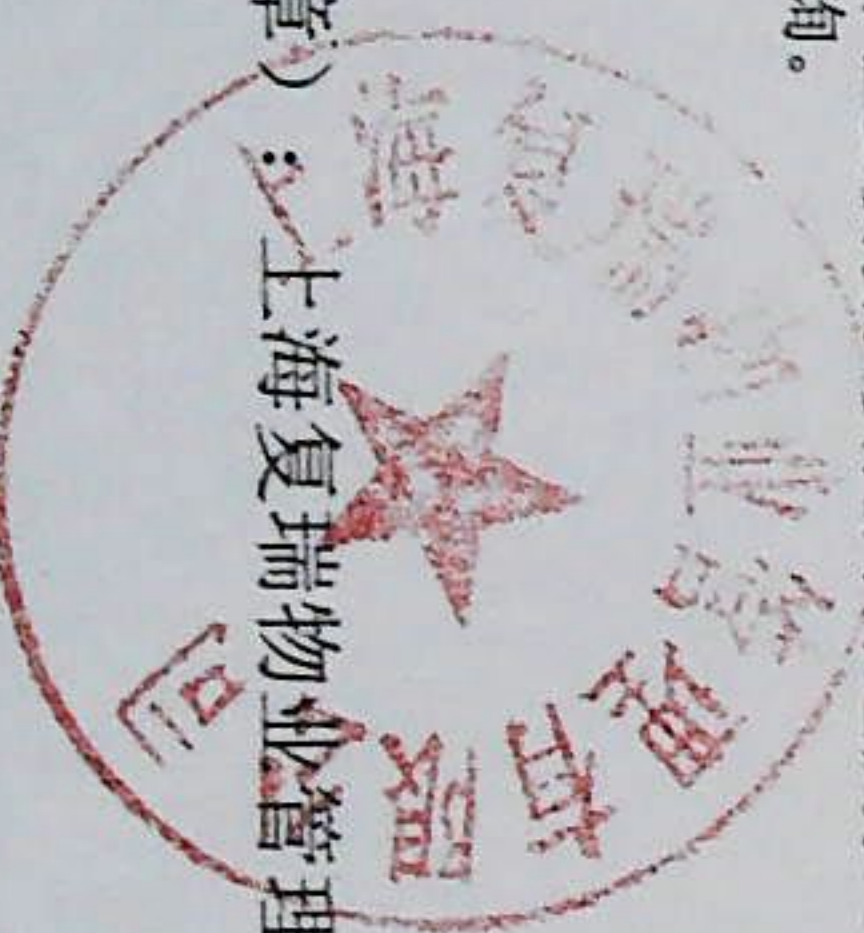 询。
章）：上海复瑞物业管理
上海复瑞物业管理有限公司